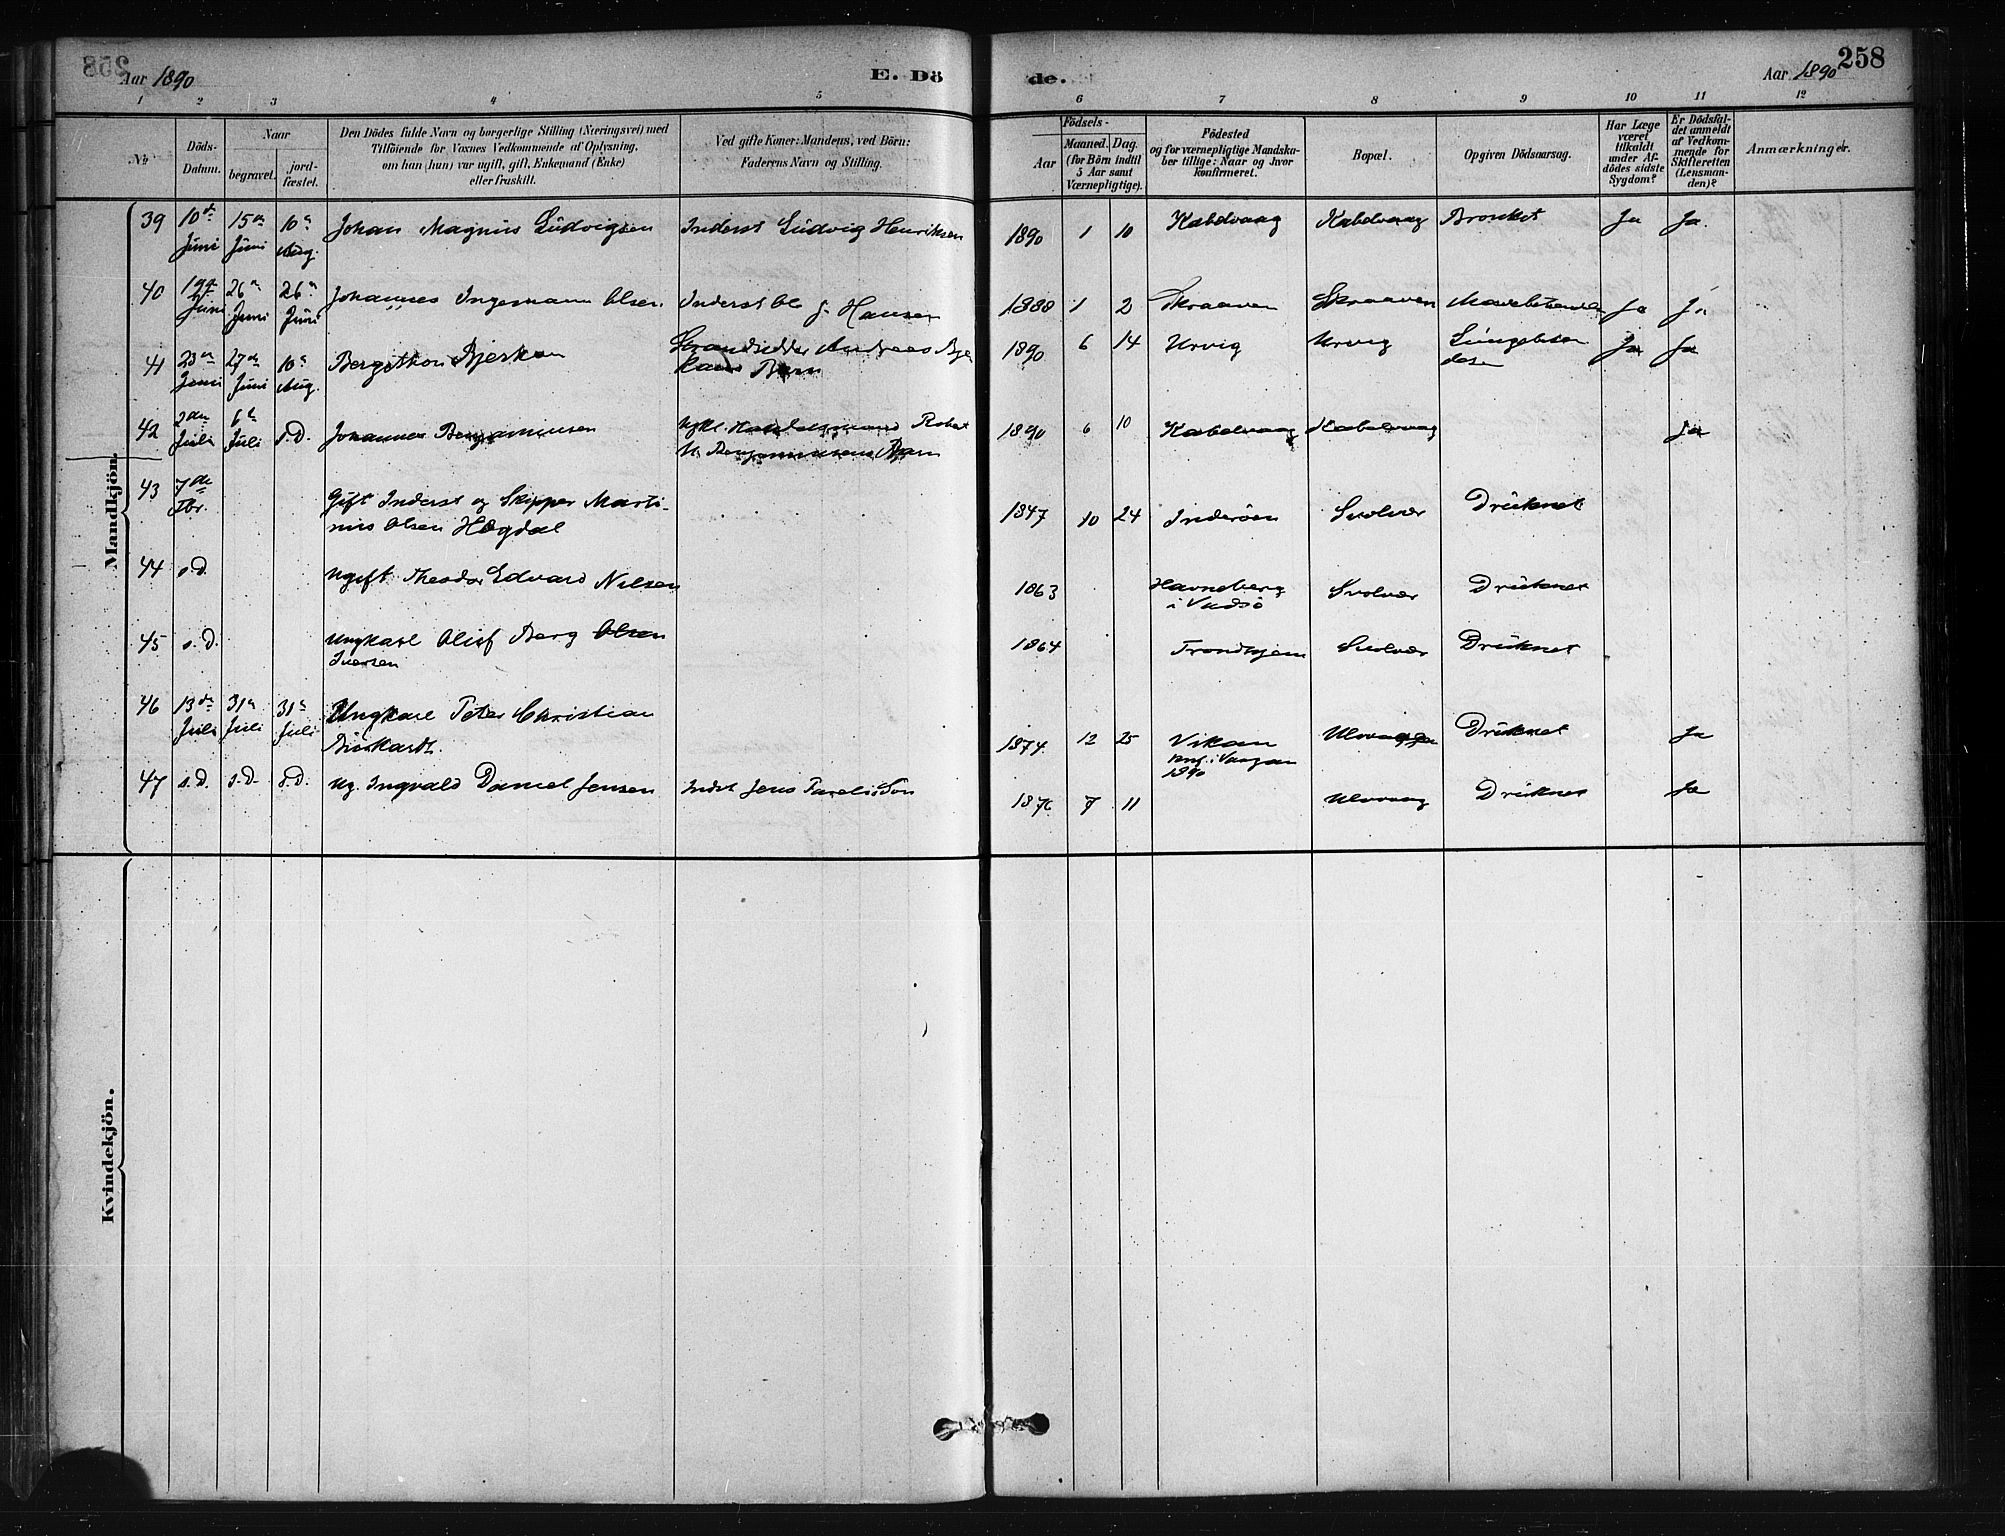 258
Aar 1890
E. Dö
de.
Aar 1890
1 2 3 4 5 6 7 8 9 10 11 12
№
Döds-
Datum.
Naar
begravet.
jord-
fæstet.
Den Dödes fulde Navn og borgerlige Stilling (Næringsvei) med
Tilföiende for Voxnes Vedkommende af Oplysning,
om han (hun) var ugift, gift, Enkemand (Enke)
eller fraskilt.
Ved gifte Koner: Mandens, ved Börn:
Faderens Navn og Stilling.
Födsels-
Aar
Maaned. Dag.
(for Börn indtil
5 Aar samt
Værnepligtige).
Födested
og for værnepligtige Mandska-
ber tillige: Naar og hvor
konfirmeret.
Bopæl.
Opgiven Dödsaarsag.
Har Læge
været
tilkaldt
under Af-
dödes sidste
Sygdom?
Er Dödsfal-
det anmeldt
af Vedkom-
mende for
Skifteretten
(Lensman-
den)?
Anmærkninger.
Mandkjön.
39 10de Juni 15de Juni 10de Aug. Johan Magnus Ludvigsen Inderst Ludvig Henriksen 1890 1 10 Kabelvaag Kabelvaag Bronkit Ja Ja.
40 Juni 26de Juni 26de Juni Johannes Ingemann Olsen Inderst Ol J. Hansen 1888 1 2 Skraaven Skraaven Ja Ja
41 23de Juni 27de Juni 10de Aug. Bergithon Bjerkan Strandsidder Andreas Bjer
kans Barn 1890 6 14 Urvig Urvig Ja Ja
42 2den Juli 6te Juli s.D. Johannes Benjaminsen Handelsmand Robert
Benjaminsens Barn 1890 6 10 Kabelvaag Kabelvaag Ja
43 7de Gift Inderst og Skipper Marti-
nus Olsen Hegdal 1847 10 24 Inderöen Svolvær Druknet
44 s.D. Ugift Theodor Edvard Nilsen 1863 Havneberg
i Vadsö Svolvær Druknet
45 s.D. Ungkarl Oluf Berg Olsen
Iversen 1864 Trondhjem Svolvær Druknet
46 13de Juli 31te Juli 31te Juli Ungkarl Peter Christian
1874 12 25 Vikan
konf. i Vaagan
1890 Druknet Ja
47 s.D. s.D. s.D. Ug. Ingvald Daniel Jensen Indst Jens 1876 7 11 Ulvvaag Druknet Ja
Kvindekjön.